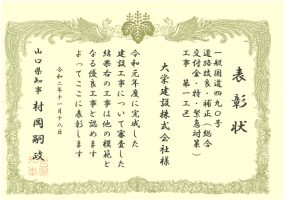 表彰状
一般国道四九〇号
道路改良・補正(総合
交付金・特・緊急対策)
工事 第一工区
大栄建設株式会社様
令和元年度に完成した
建設工事について審査した
結果右の工事は他の模範と
なる優良工事と認めます
よってここに表彰します
令和二年十一月十八日
山口県知事 村岡嗣政